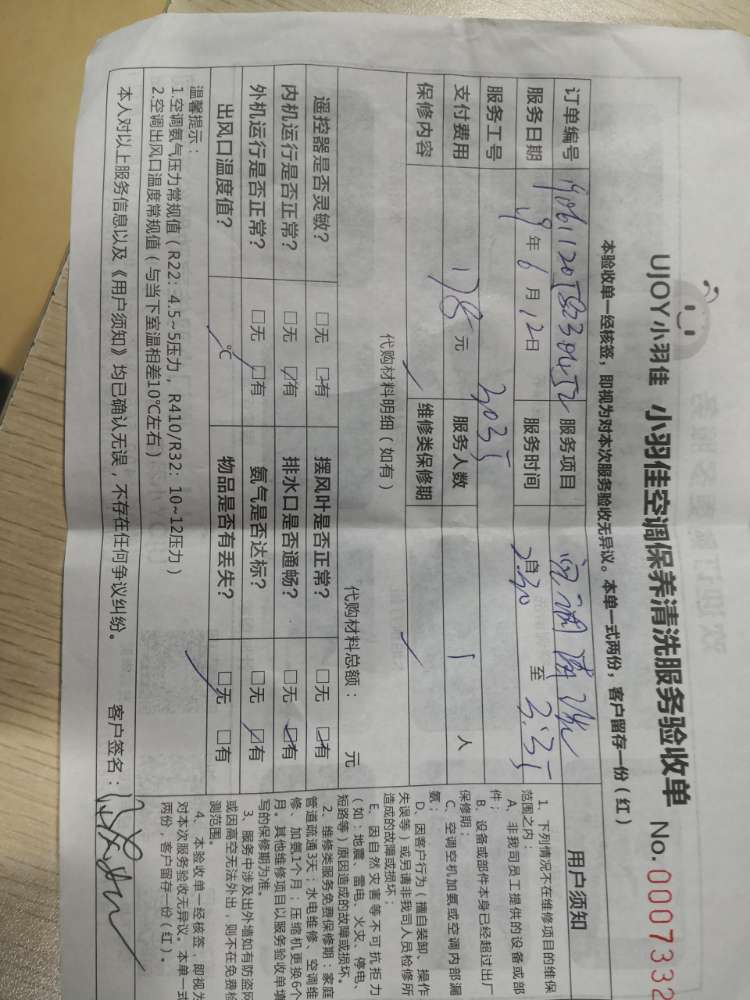 UJOY小羽佳 小羽佳空调保养清洗服务验收单 No. 0007332
本验收单一经核签，即视为对本次服务验收无异议。本单一式两份，客户留存一份（红）
订单编号 服务项目 空调清洗
服务日期 19年6月12日 服务时间 自2:30至3:35
服务工号 3035
支付费用 178元 服务人数 1人
保修内容 维修类保修期
代购材料明细（如有） 代购材料总额： 元
遥控器是否灵敏？ □无 ☑有 摆风叶是否正常？ □无 ☑有
内机运行是否正常？ □无 ☑有 排水口是否通畅？ □无 ☑有
外机运行是否正常？ □无 ☑有 氨气是否达标？ □无 ☑有
出风口温度值？ ℃ 物品是否有丢失？ ☑无 □有
温馨提示：
1.空调氨气压力常规值（R22：4.5~5压力，R410/R32：10~12压力）
2.空调出风口温度常规值（与当下室温相差10℃左右）
本人对以上服务信息以及《用户须知》均已确认无误，不存在任何争议纠纷。 客户签名：
用户须知
1、下列情况不在维修项目的维保
范围之内：
A、非我司员工提供的设备或部
件；
B、设备或部件本身已经超过出厂
保修期；
C、空调空机加氨或空调内部漏
氨；
D、因客户行为（擅自装卸、操作
失误等）或另请非我司人员检修所
造成的故障或损坏；
E、因自然灾害等不可抗拒力
（如：地震、雷电、火灾、停电、
短路等）原因造成的故障或损坏。
2、维修类服务免费保修期：家庭
管道疏通3天；水电维修、空调维
修、加氨1个月；压缩机更换6个
月。其他维修项目以服务验收单填
写的保修期为准。
3、服务中涉及出外墙如有防盗网
或因高空无法外出，则不在免费检
测范围。
4、本验收单一经核签，即视为
对本次服务验收无异议。本单一式
两份，客户留存一份（红）。